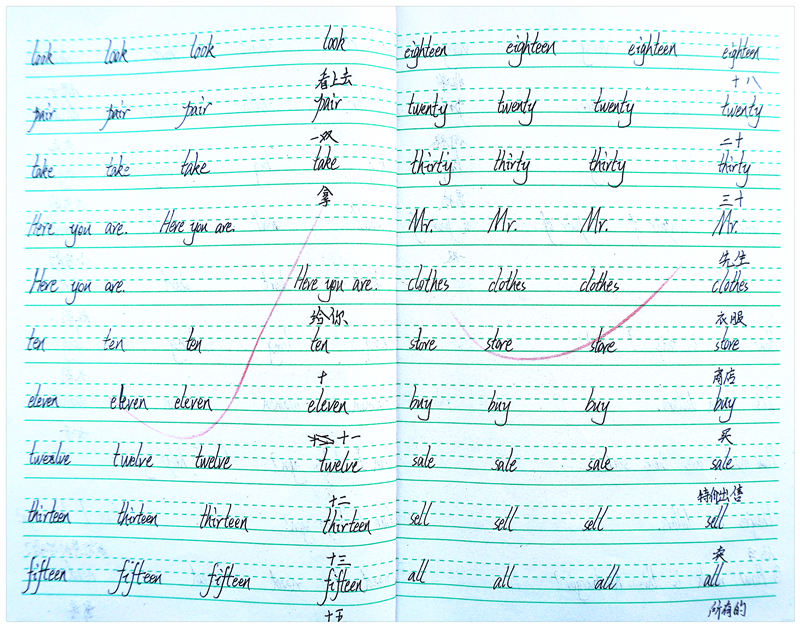 look look look look
看上去
pair pair pair pair
一双
take take take take
拿
Here you are. Here you are.
Here you are. Here you are.
给你
ten ten ten ten
十
eleven eleven eleven eleven
十一
twelve twelve twelve twelve
十二
thirteen thirteen thirteen thirteen
十三
fifteen fifteen fifteen fifteen
十五
eighteen eighteen eighteen eighteen
十八
twenty twenty twenty twenty
二十
thirty thirty thirty thirty
三十
Mr. Mr. Mr. Mr.
先生
clothes clothes clothes clothes
衣服
store store store store
商店
buy buy buy buy
买
sale sale sale sale
特价出售
sell sell sell sell
卖
all all all all
所有的